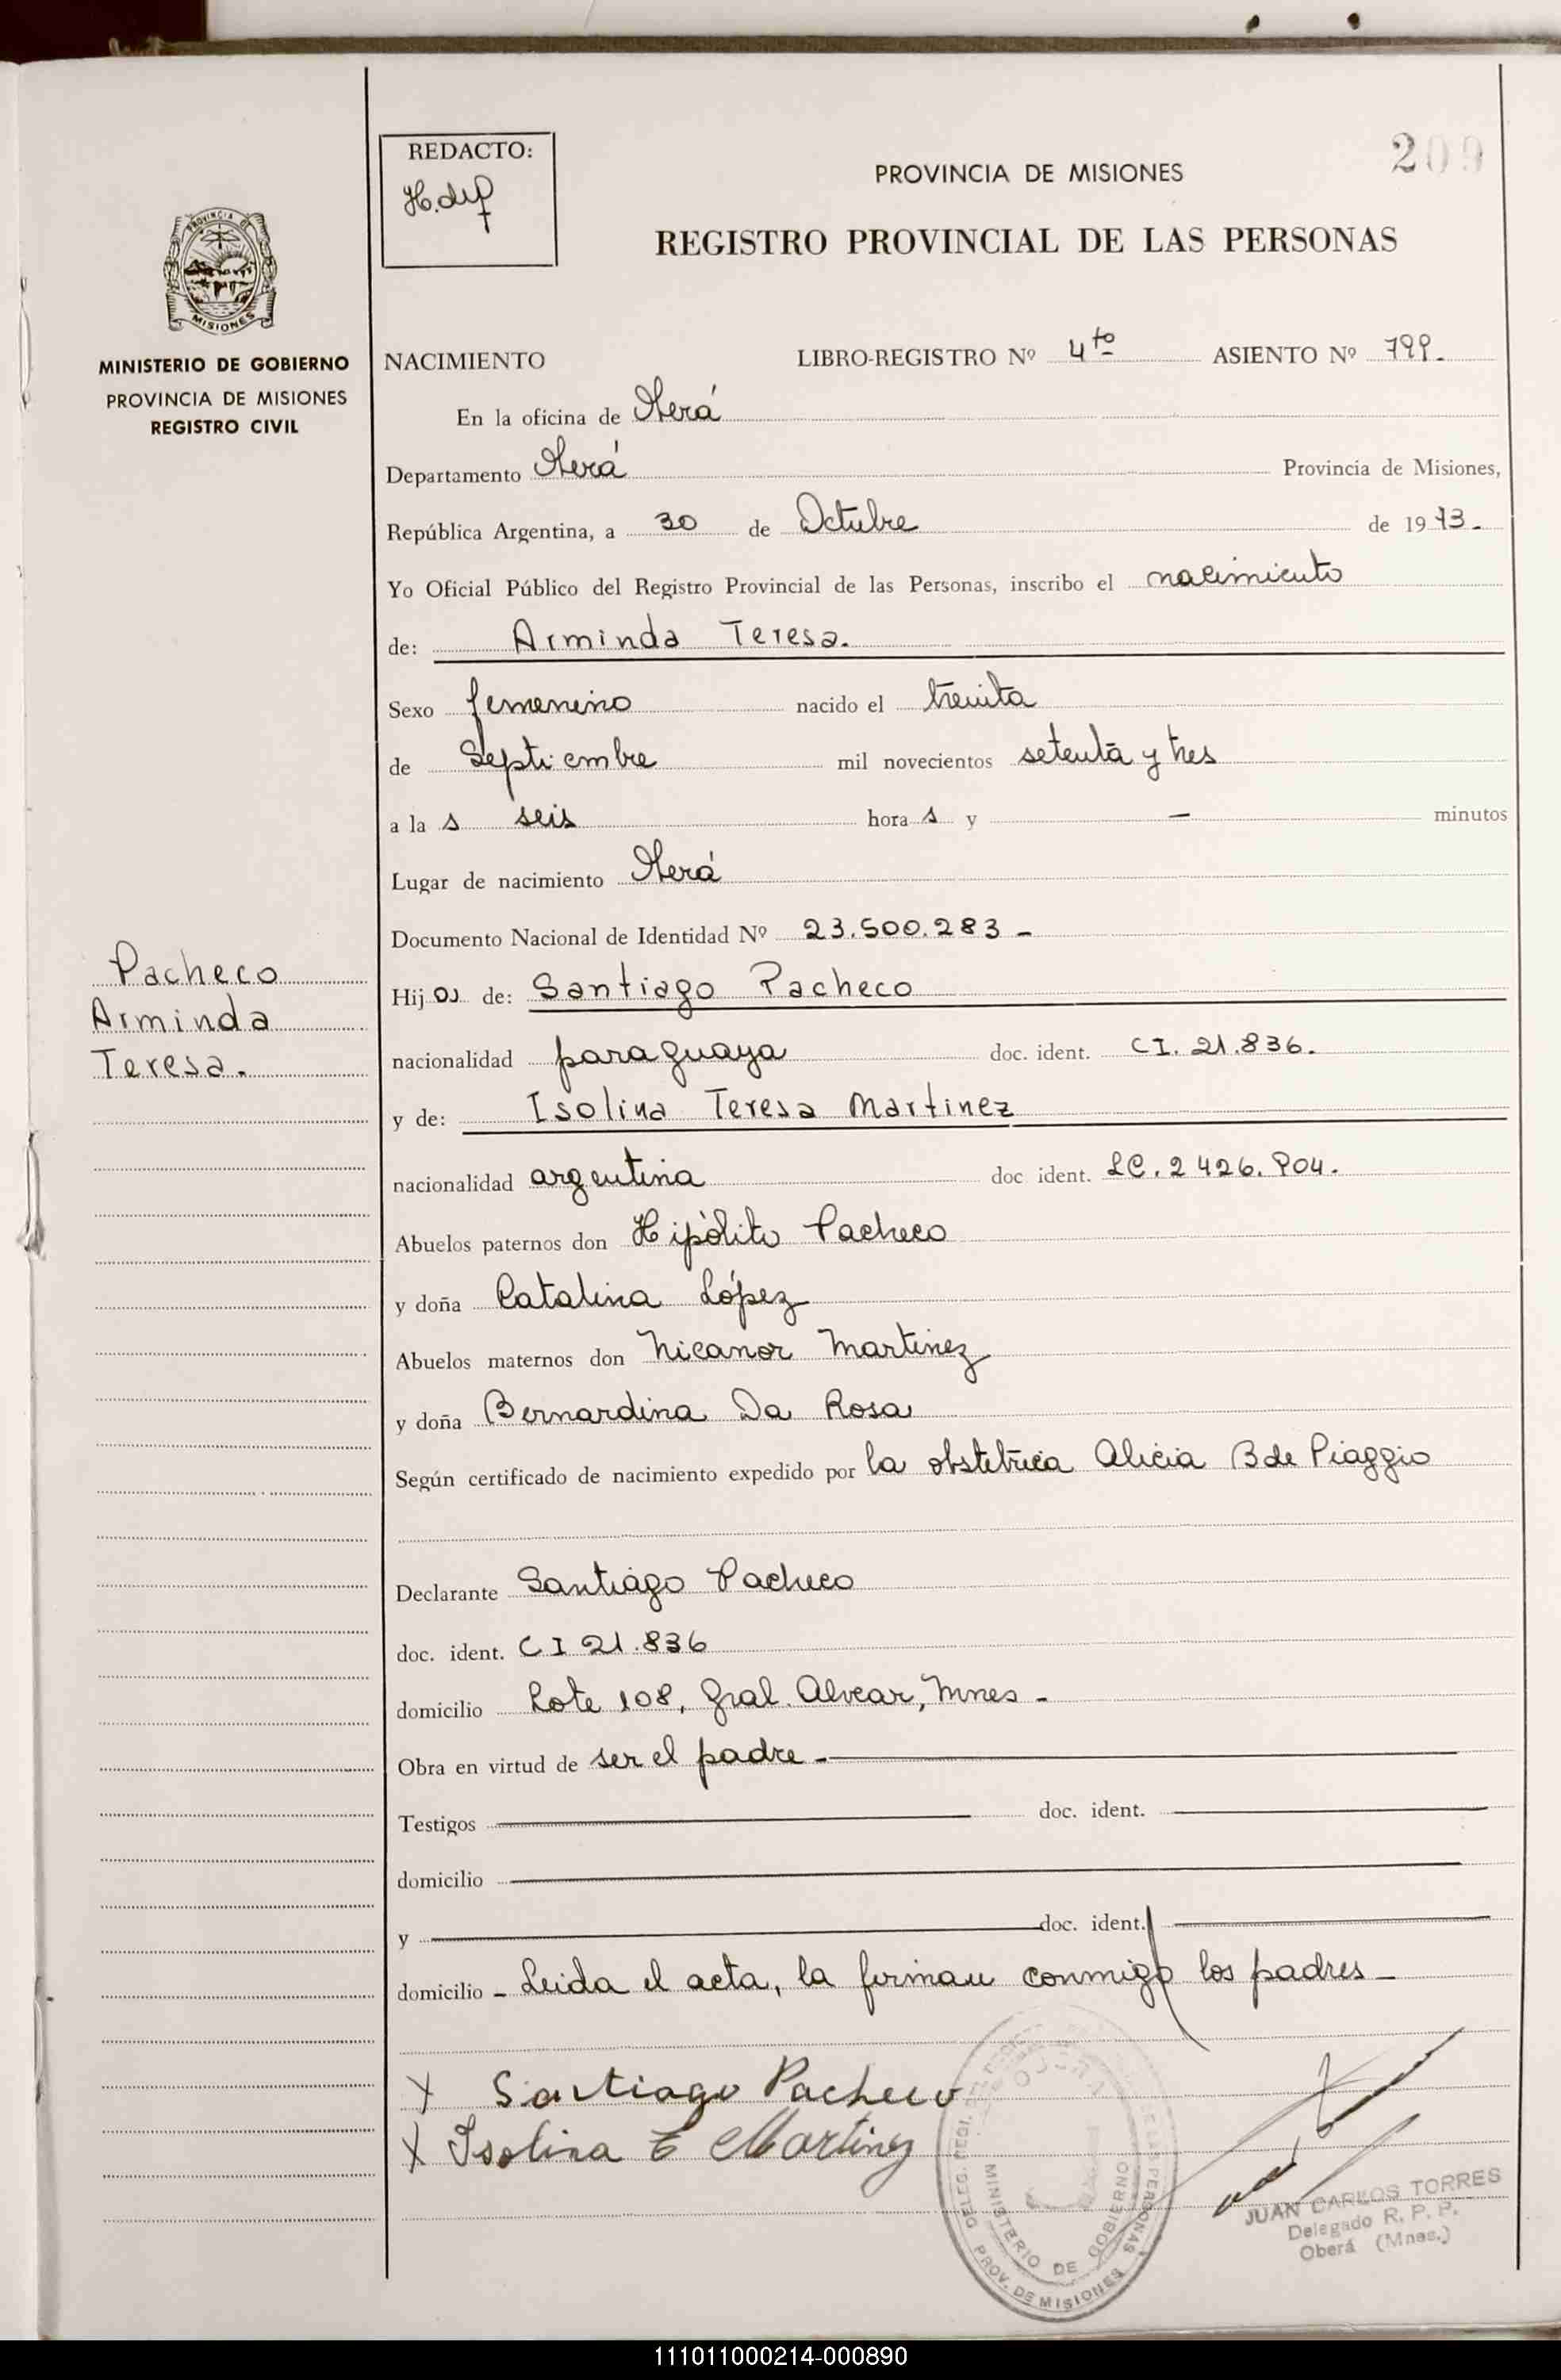 209
REDACTO:
PROVINCIA DE MISIONES
REGISTRO PROVINCIAL DE LAS PERSONAS
PROVINCIA DE
MISIONES
MINISTERIO DE GOBIERNO
PROVINCIA DE MISIONES
REGISTRO CIVIL
NACIMIENTO LIBRO-REGISTRO Nº 4to ASIENTO Nº 799.
En la oficina de Oberá
Departamento Oberá Provincia de Misiones,
República Argentina, a 30 de Octubre de 1973.
Yo Oficial Público del Registro Provincial de las Personas, inscribo el nacimiento
de: Arminda Teresa.
Sexo femenino nacido el treinta
de Septiembre mil novecientos setenta y tres
a la s seis hora s y — minutos
Lugar de nacimiento Oberá
Documento Nacional de Identidad Nº 23.500.283 -
Pacheco
Arminda
Teresa.
Hij a de: Santiago Pacheco
nacionalidad paraguaya doc. ident. CI. 21.836.
y de: Isolina Teresa Martinez
nacionalidad argentina doc ident. LC. 2 426. 904.
Abuelos paternos don Hipólito Pacheco
y doña Catalina López
Abuelos maternos don Nicanor Martinez
y doña Bernardina Da Rosa
Según certificado de nacimiento expedido por la obstetrica Alicia B de Piaggio
Declarante Santiago Pacheco
doc. ident. C I 21.836
domicilio Lote 108, Gral. Alvear, Mnes -
Obra en virtud de ser el padre -
Testigos doc. ident.
domicilio
y doc. ident.
domicilio - Leida el acta, la firman conmigo los padres -
X Santiago Pacheco
X Isolina T Martinez
MINISTERIO DE GOBIERNO
PROV. DE MISIONES
JUAN CARLOS TORRES
Delegado R. P. P.
Oberá (Mnes.)
111011000214-000890